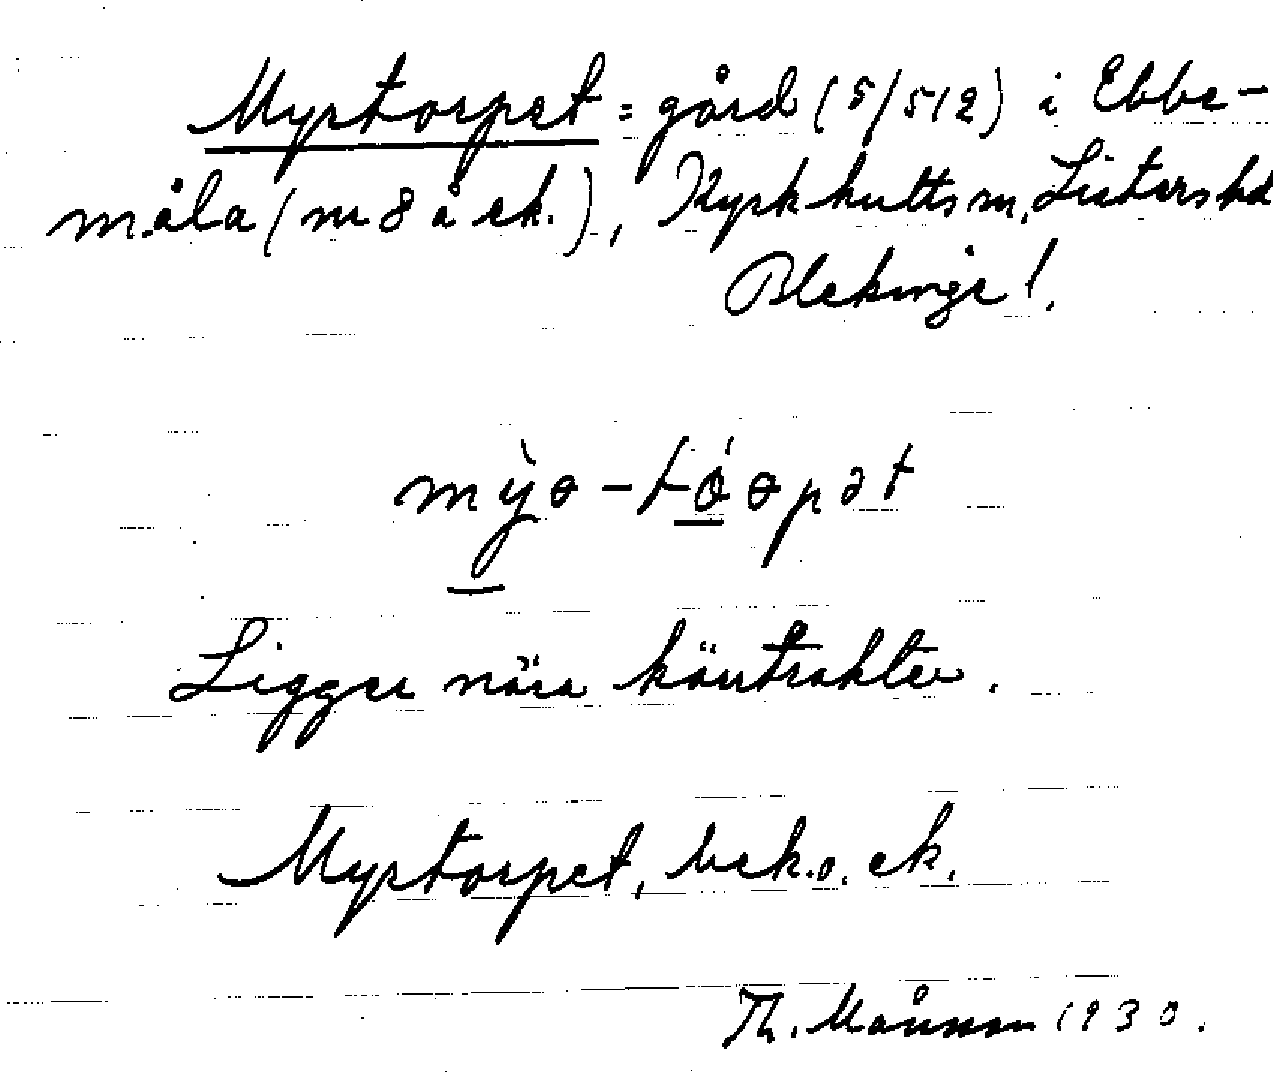 Myrtorpet = gård (5/512) i Ebbe-
måla (nr 8 å ek.), Kyrkhults sn, Listers hd
Blekinge!.
Ligger nära kärrtrakter.
Myrtorpet, bek. o. ek.
Th. Månsson 1930.